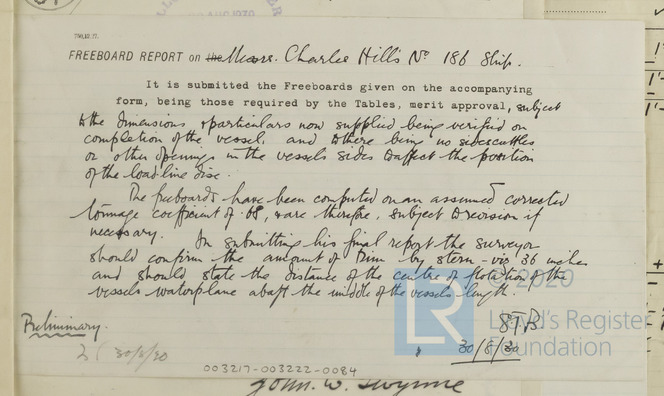 AUG 1930
790,12,77.
FREEBOARD REPORT on the Messrs. Charles Hill's No 186 Ship.
It is submitted the Freeboards given on the accompanying
form, being those required by the Tables, merit approval, subject
to the dimensions & particulars now supplied being verified on
completion of the vessel, and to there being no sidescuttles
or other openings in the vessels sides to affect the position
of the load-line disc.
The freeboards have been computed on an assumed corrected
tonnage coefficient of .68, & are therefore, subject to revision if
necessary. In submitting his final report the surveyor
should confirm the amount of trim by stern - viz 36 inches
and should state the distance of the centre of flotation of the
vessels waterplane abaft the middle of the vessels length.
© 2020
LR Lloyd's Register
Foundation
Preliminary.
30/8/30
30/8/30
003217-003222-0084
John. W.